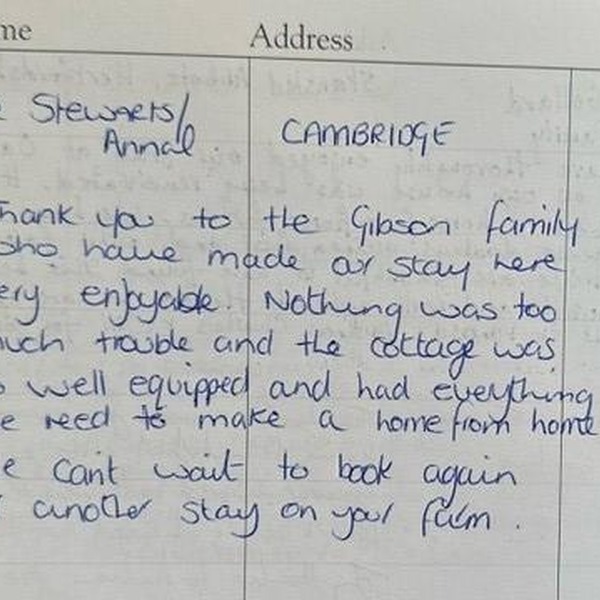 me Address
Stewarts/
Annal. CAMBRIDGE
hank you to the Gibson family
ho have made our stay here
ery enjoyable. Nothing was too
uch trouble and the cottage was
o well equipped and had everything
e need to make a home from home
e can't wait to book again
r another stay on your farm.